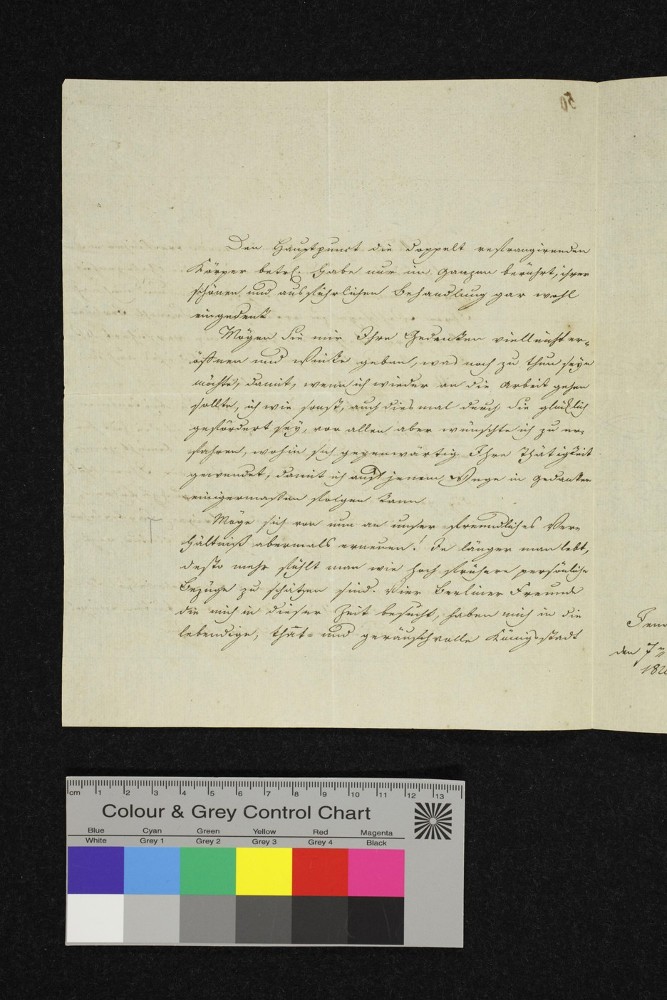 50
Den Hauptpunct die doppelt refrangirenden
Körper betr. habe nur im Ganzen berührt, ihrer
schönen und ausführlichen Behandlung gar wohl
eingedenk.
Mögen Sie mir Ihre Gedanken vielleicht er-
öffnen und Winke geben, was noch zu thun seyn
möchte, damit, wenn ich wieder an die Arbeit gehen
sollte, ich wie sonst, auch diesmal durch Sie glücklich
gefördert sey, vor allen aber wünschte ich zu er-
fahren, wohin sich gegenwärtig Ihre Thätigkeit
gewendet, damit ich auch jenem Wege in Gedanken
einigermassen folgen kann.
Möge sich von nun an unser freundliches Ver-
hältniß abermals erneuen! Je länger man lebt,
desto mehr fühlt man wie hoch frühere persönliche
Bezüge zu schätzen sind. Vier Berliner Freunde
die mich in dieser Zeit besucht, haben mich in die
lebendige, that- und geräuschvolle Königsstadt
Jena
den 7
182
cm 1 2 3 4 5 6 7 8 9 10 11 12 13
Colour & Grey Control Chart
Blue Cyan Green Yellow Red Magenta
White Grey 1 Grey 2 Grey 3 Grey 4 Black